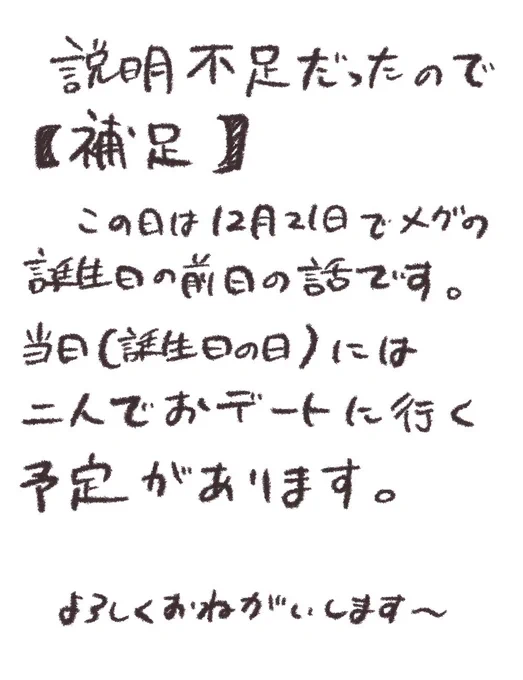 説明不足だったので
【補足】
この日は12月21日でメグの
誕生日の前日の話です。
当日(誕生日の日)には
二人でおデートに行く
予定があります。
よろしくおねがいします〜